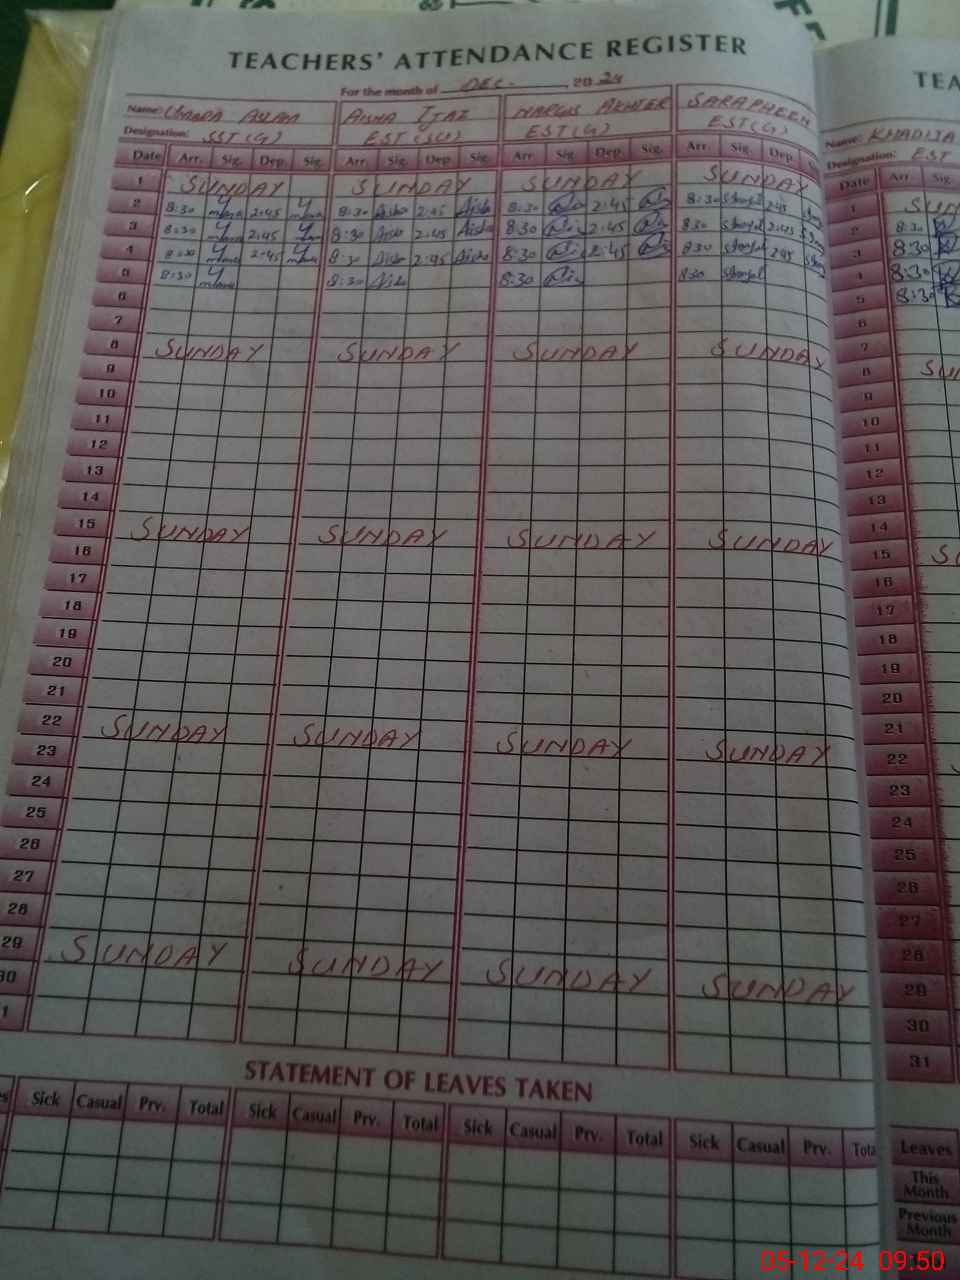 TEACHERS' ATTENDANCE REGISTER
TEA
For the month of DEC. 2024
Name: ASLAM AISHA IJAZ NARGIS AKHTER
Name: KHADIJA
Designation: SST(G) EST(SC) EST(G) EST(G)
Designation: EST
Date Arr. Sig. Dep. Sig. Arr. Sig. Dep. Sig. Arr. Sig. Dep. Sig. Arr. Sig. Dep.
Date Arr. Sig.
1 SUNDAY SUNDAY SUNDAY SUNDAY
2 8:30 2:45 8:30 Aisha 2:45 Aisha 8:30 2:45 8:30 2:45
3 8:30 2:45 8:30 Aisha 2:45 Aisha 8:30 2:45 8:30 2:45
4 8:30 2:45 8:30 Aisha 2:45 Aisha 8:30 2:45 8:30 2:45
5 8:30 8:30 Aisha 8:30 8:30
6
7
8 SUNDAY SUNDAY SUNDAY SUNDAY
9
10
11
12
13
14
15 SUNDAY SUNDAY SUNDAY SUNDAY
16
17
18
19
20
21
22 SUNDAY SUNDAY SUNDAY SUNDAY
23
24
25
26
27
28
29 SUNDAY SUNDAY SUNDAY SUNDAY
30
1
1 SUN
2 8:30
3 8:30
4 8:30
5 8:30
6
7
8 SUN
9
10
11
12
13
14
15
16
17
18
19
20
21
22
23
24
25
26
27
28
29
30
31
STATEMENT OF LEAVES TAKEN
Sick Casual Prv. Total Sick Casual Prv. Total Sick Casual Prv. Total Sick Casual Prv. Tota
Leaves
This
Month
Previous
Month
05-12-24 09:50